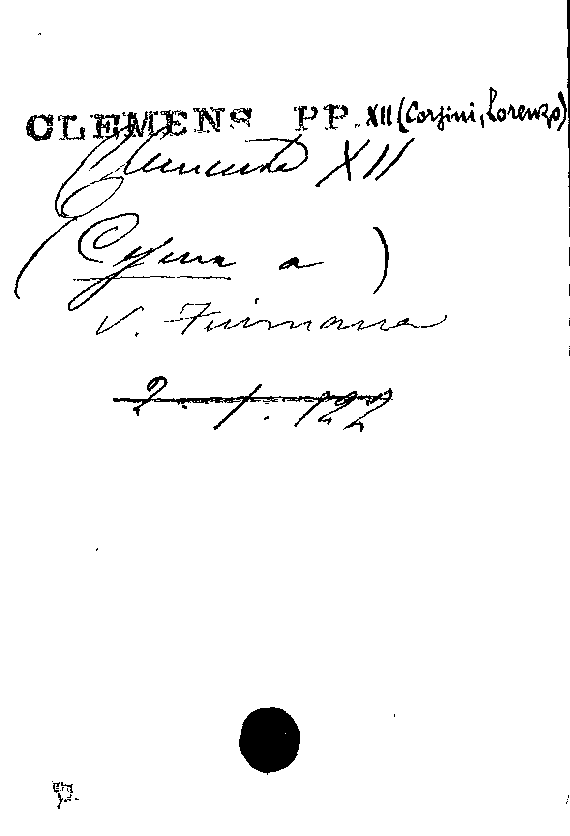 CLEMENS PP. XII (Corsini, Lorenzo)
Clemente XII
( a )
V. Firmana
2. 1. 922